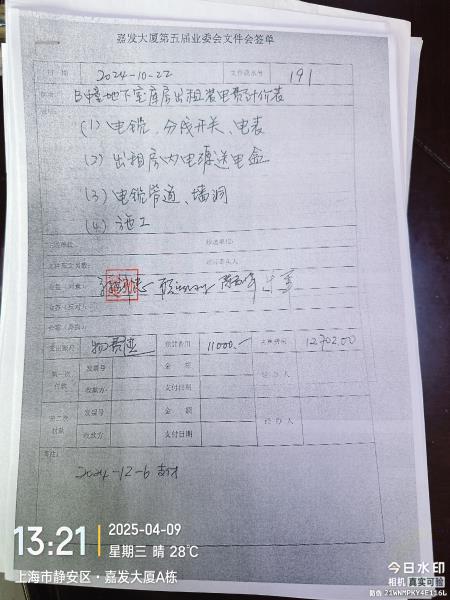 嘉发大厦第五届业委会文件会签单
日期 2024-10-22 文件流水号 191
B幢地下室库房出租装电费计价表
(1) 电缆、分线开关、电表
(2) 出租房内电源送电盒
(3) 电缆管道、墙洞
(4) 施工
会签（同意）
会签（反对）
会签（弃权）
支出账户 物费 预计费用 11000.- 实际费用 12702.00
第一次付款 发票号 金额 经办人
收款方 支付日期
第二次付款 发票号 金额 经办人
收款方 支付日期
备注：
2024-12-6 支付
13:21 2025-04-09
星期三 晴 28℃
上海市静安区·嘉发大厦A栋
今日水印
相机 真实可验
防伪 21WNMPKY4E116L